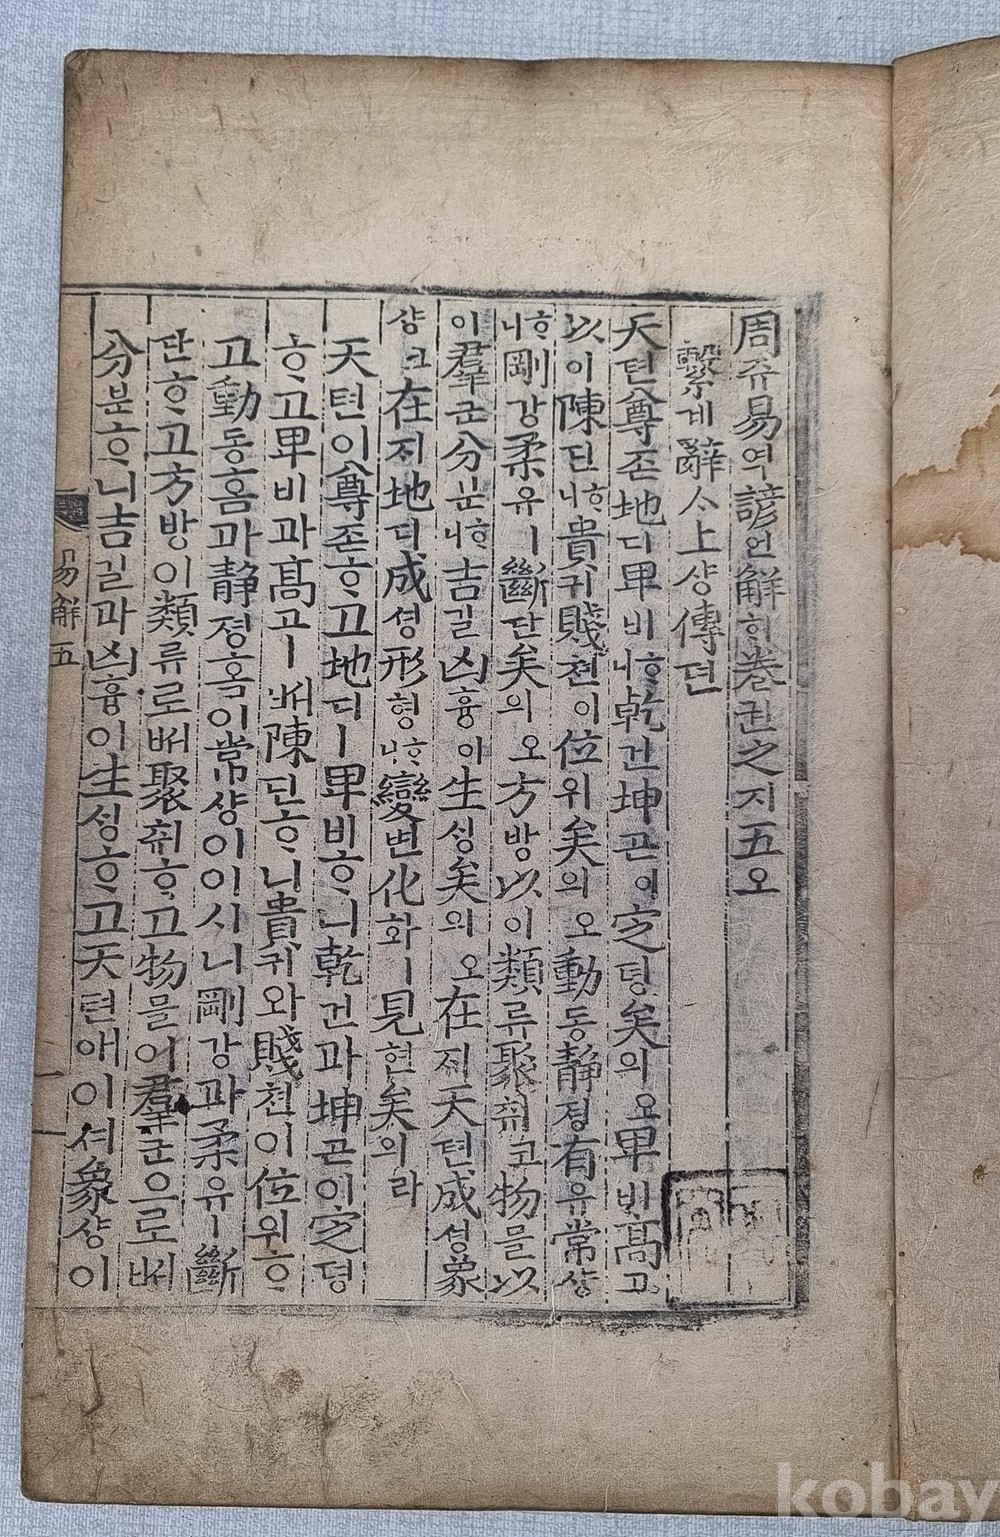 周쥬易역諺언解ᄒᆡ卷권之지五오
繫계辭ᄉᆞ上샹傳뎐
天텬尊존地디卑비ᄒᆞ니乾건坤곤이定뎡矣의오卑비高고
以이陳딘ᄒᆞ니貴귀賤쳔이位위矣의오動동靜졍有유常샹
ᄒᆞ니剛강柔유ㅣ斷단矣의오方방以이類류聚ᄎᆔ코物믈以
이羣군分분ᄒᆞ니吉길凶흉이生ᄉᆡᆼ矣의오在ᄌᆡ天텬成셩象
샹코在ᄌᆡ地디成셩形형ᄒᆞ니變변化화ㅣ見현矣의라
天텬이尊존ᄒᆞ고地디ㅣ卑비ᄒᆞ니乾건과坤곤이定뎡
ᄒᆞ고卑비과高고ㅣㅂㅓ陳딘ᄒᆞ니貴귀와賤쳔이位위ᄒᆞ
고動동홈과靜졍홈이常샹이이시니剛강과柔유ㅣ斷
단ᄒᆞ고方방이類류로ᄡᅥ聚ᄎᆔᄒᆞ고物믈이羣군으로ᄡᅥ
分분ᄒᆞ니吉길과凶흉이生ᄉᆡᆼᄒᆞ고天텬애이셔象샹이
易解五
kobay